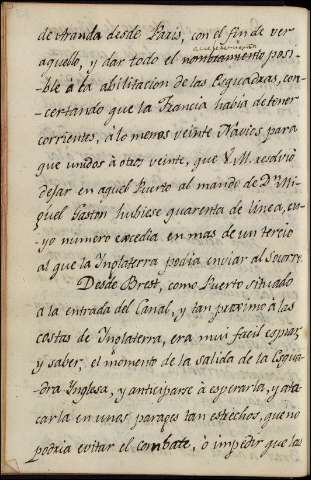 de Aranda desde Paris, con el fin de ver
aquello, y dar todo el nombramiento posi-
-ble à la abilitacion de las Esquadras, con-
-certando que la Francia habia de tener
corrientes, à lo menos veinte Návios para
que unidos à otros veinte, que V. M. resolvió
dejar en aquel Puerto al mando de Dn. Mi-
guel Gaston hubiese quarenta de linea, cu-
-yo numero excedia en mas de un tercio
al que la Inglaterra podia enviar al Socorro.
Desde Brest, como Puerto situado
a la entrada del Canal, y tan proximo à las
costas de Inglaterra, era mui facil espiar,
y saber, el momento de la salida de la Esqua-
-dra Inglesa, y anticiparse à esperarla, y ata-
carla en unos parages tan estrechos, que no
podria evitar el combate, ò impedir que las